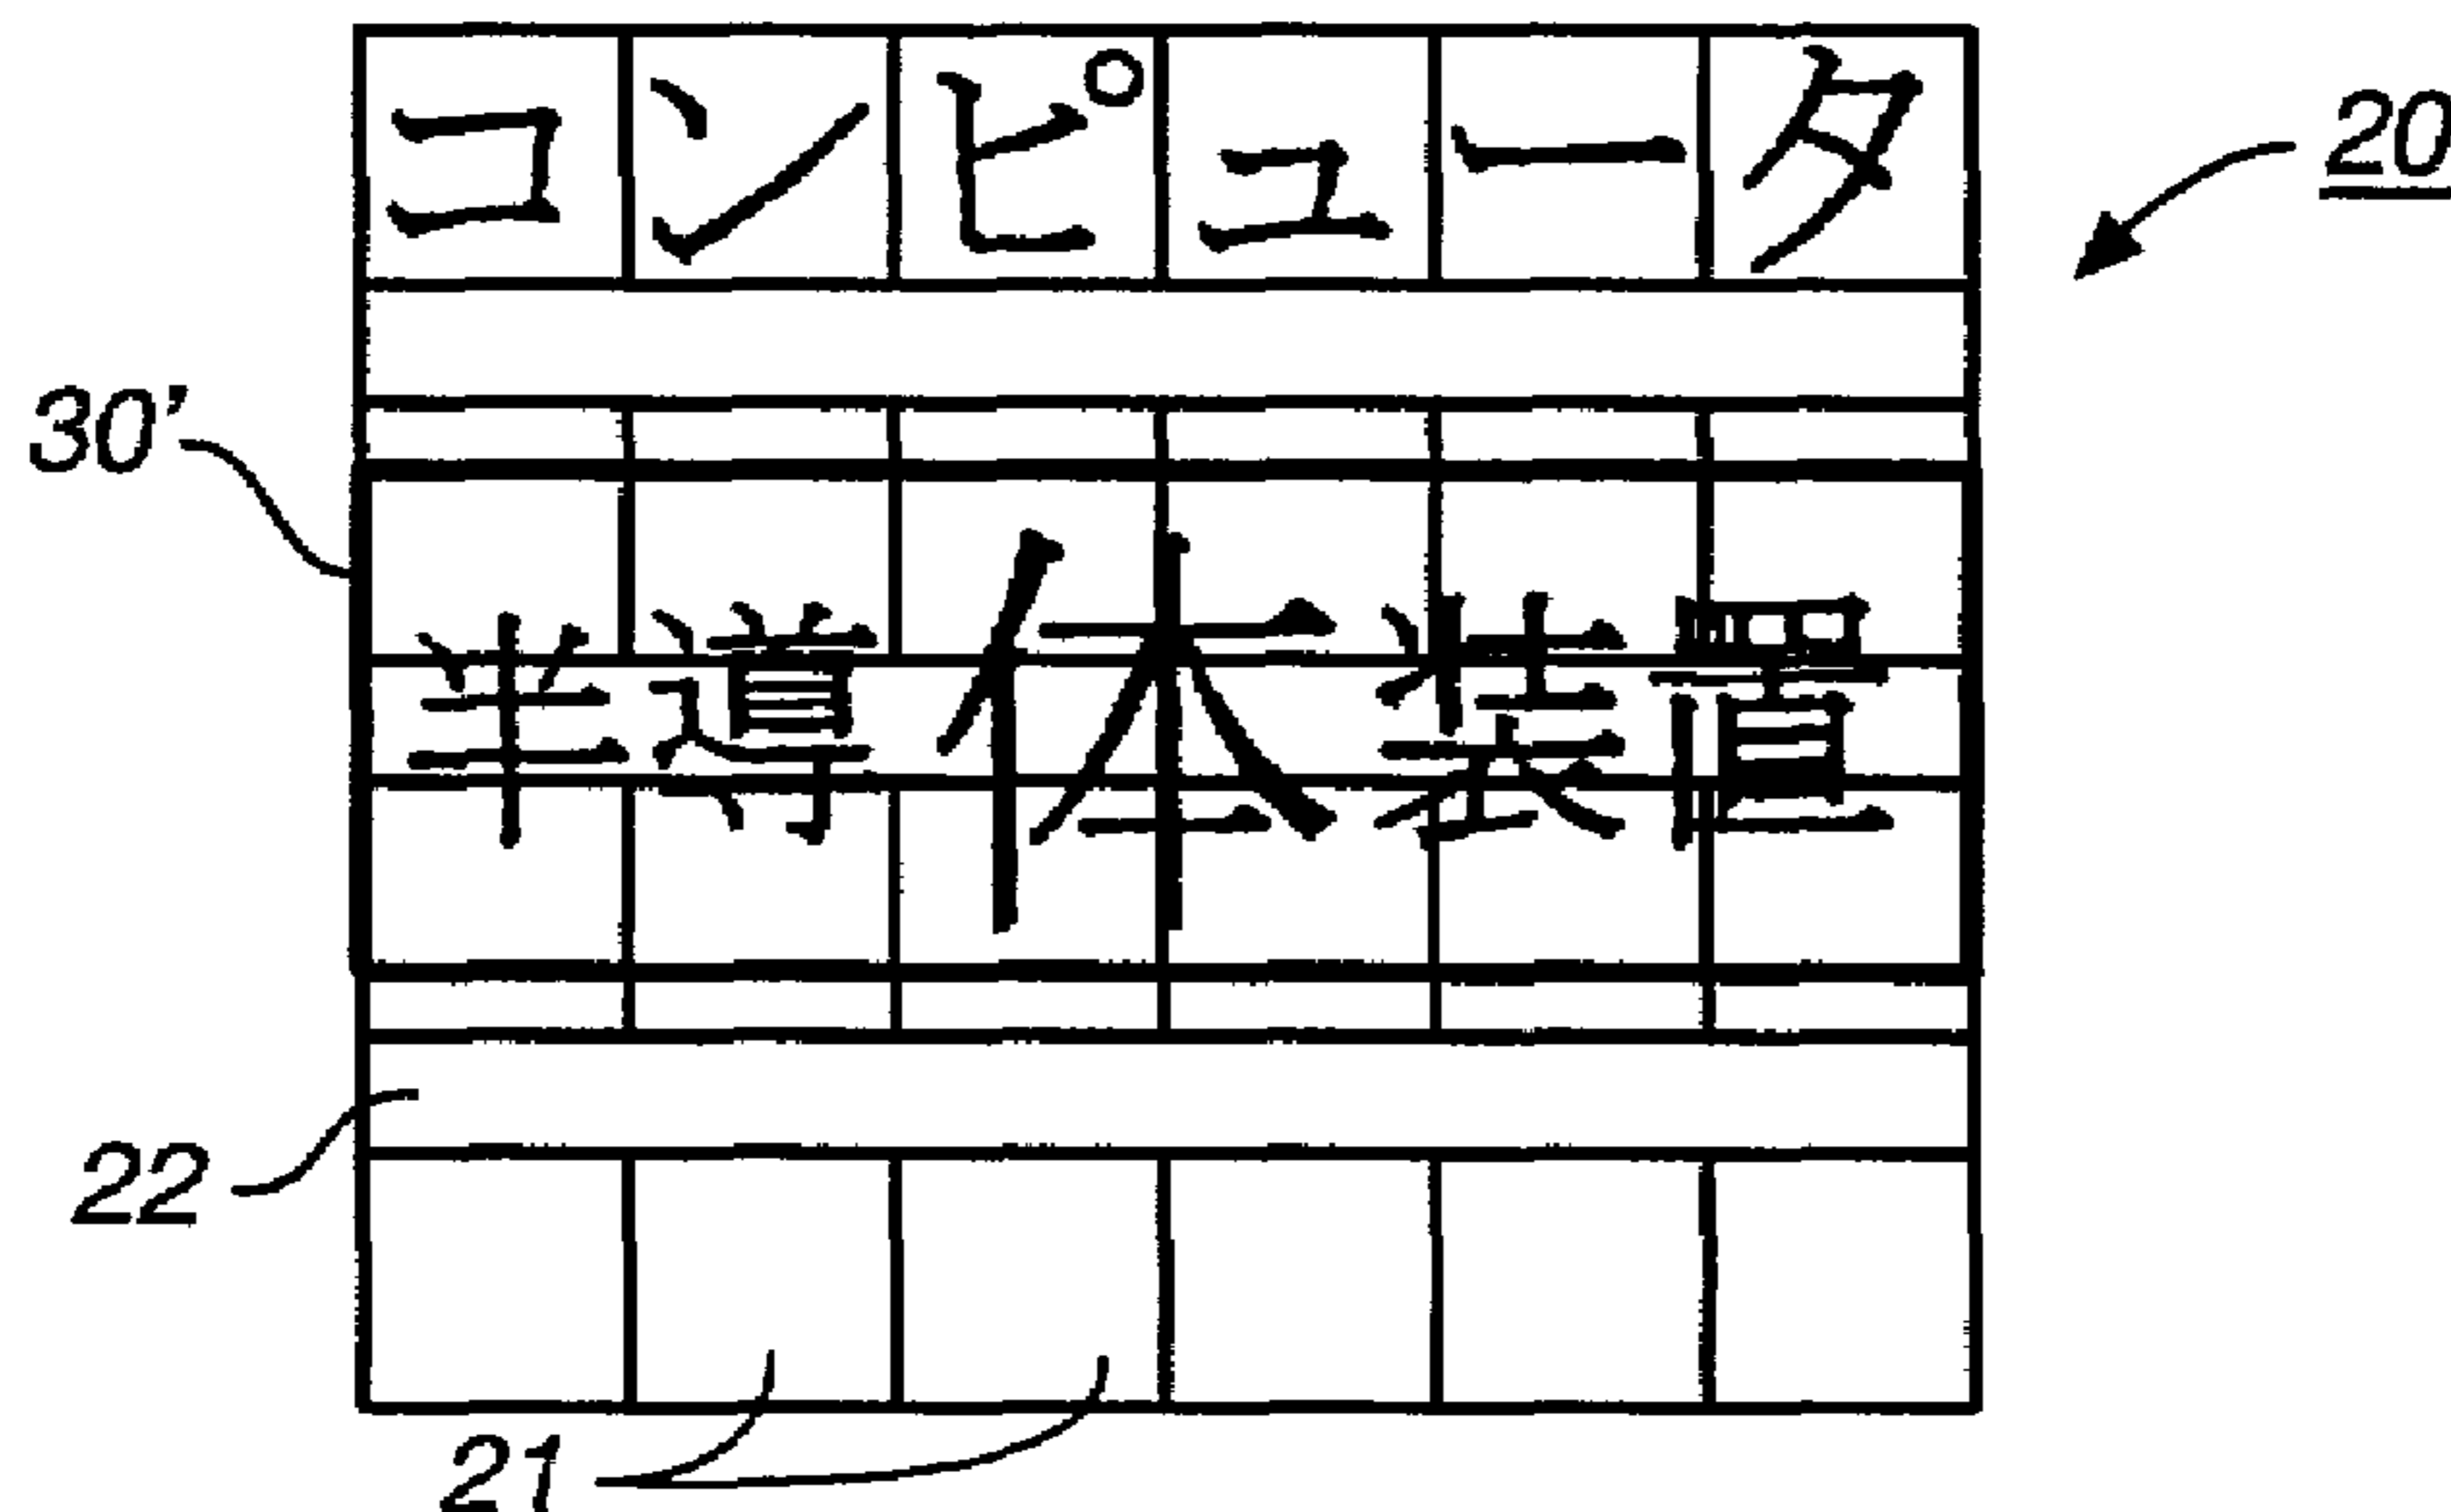 コンピュータ
20
30'
半導体装置
22
21